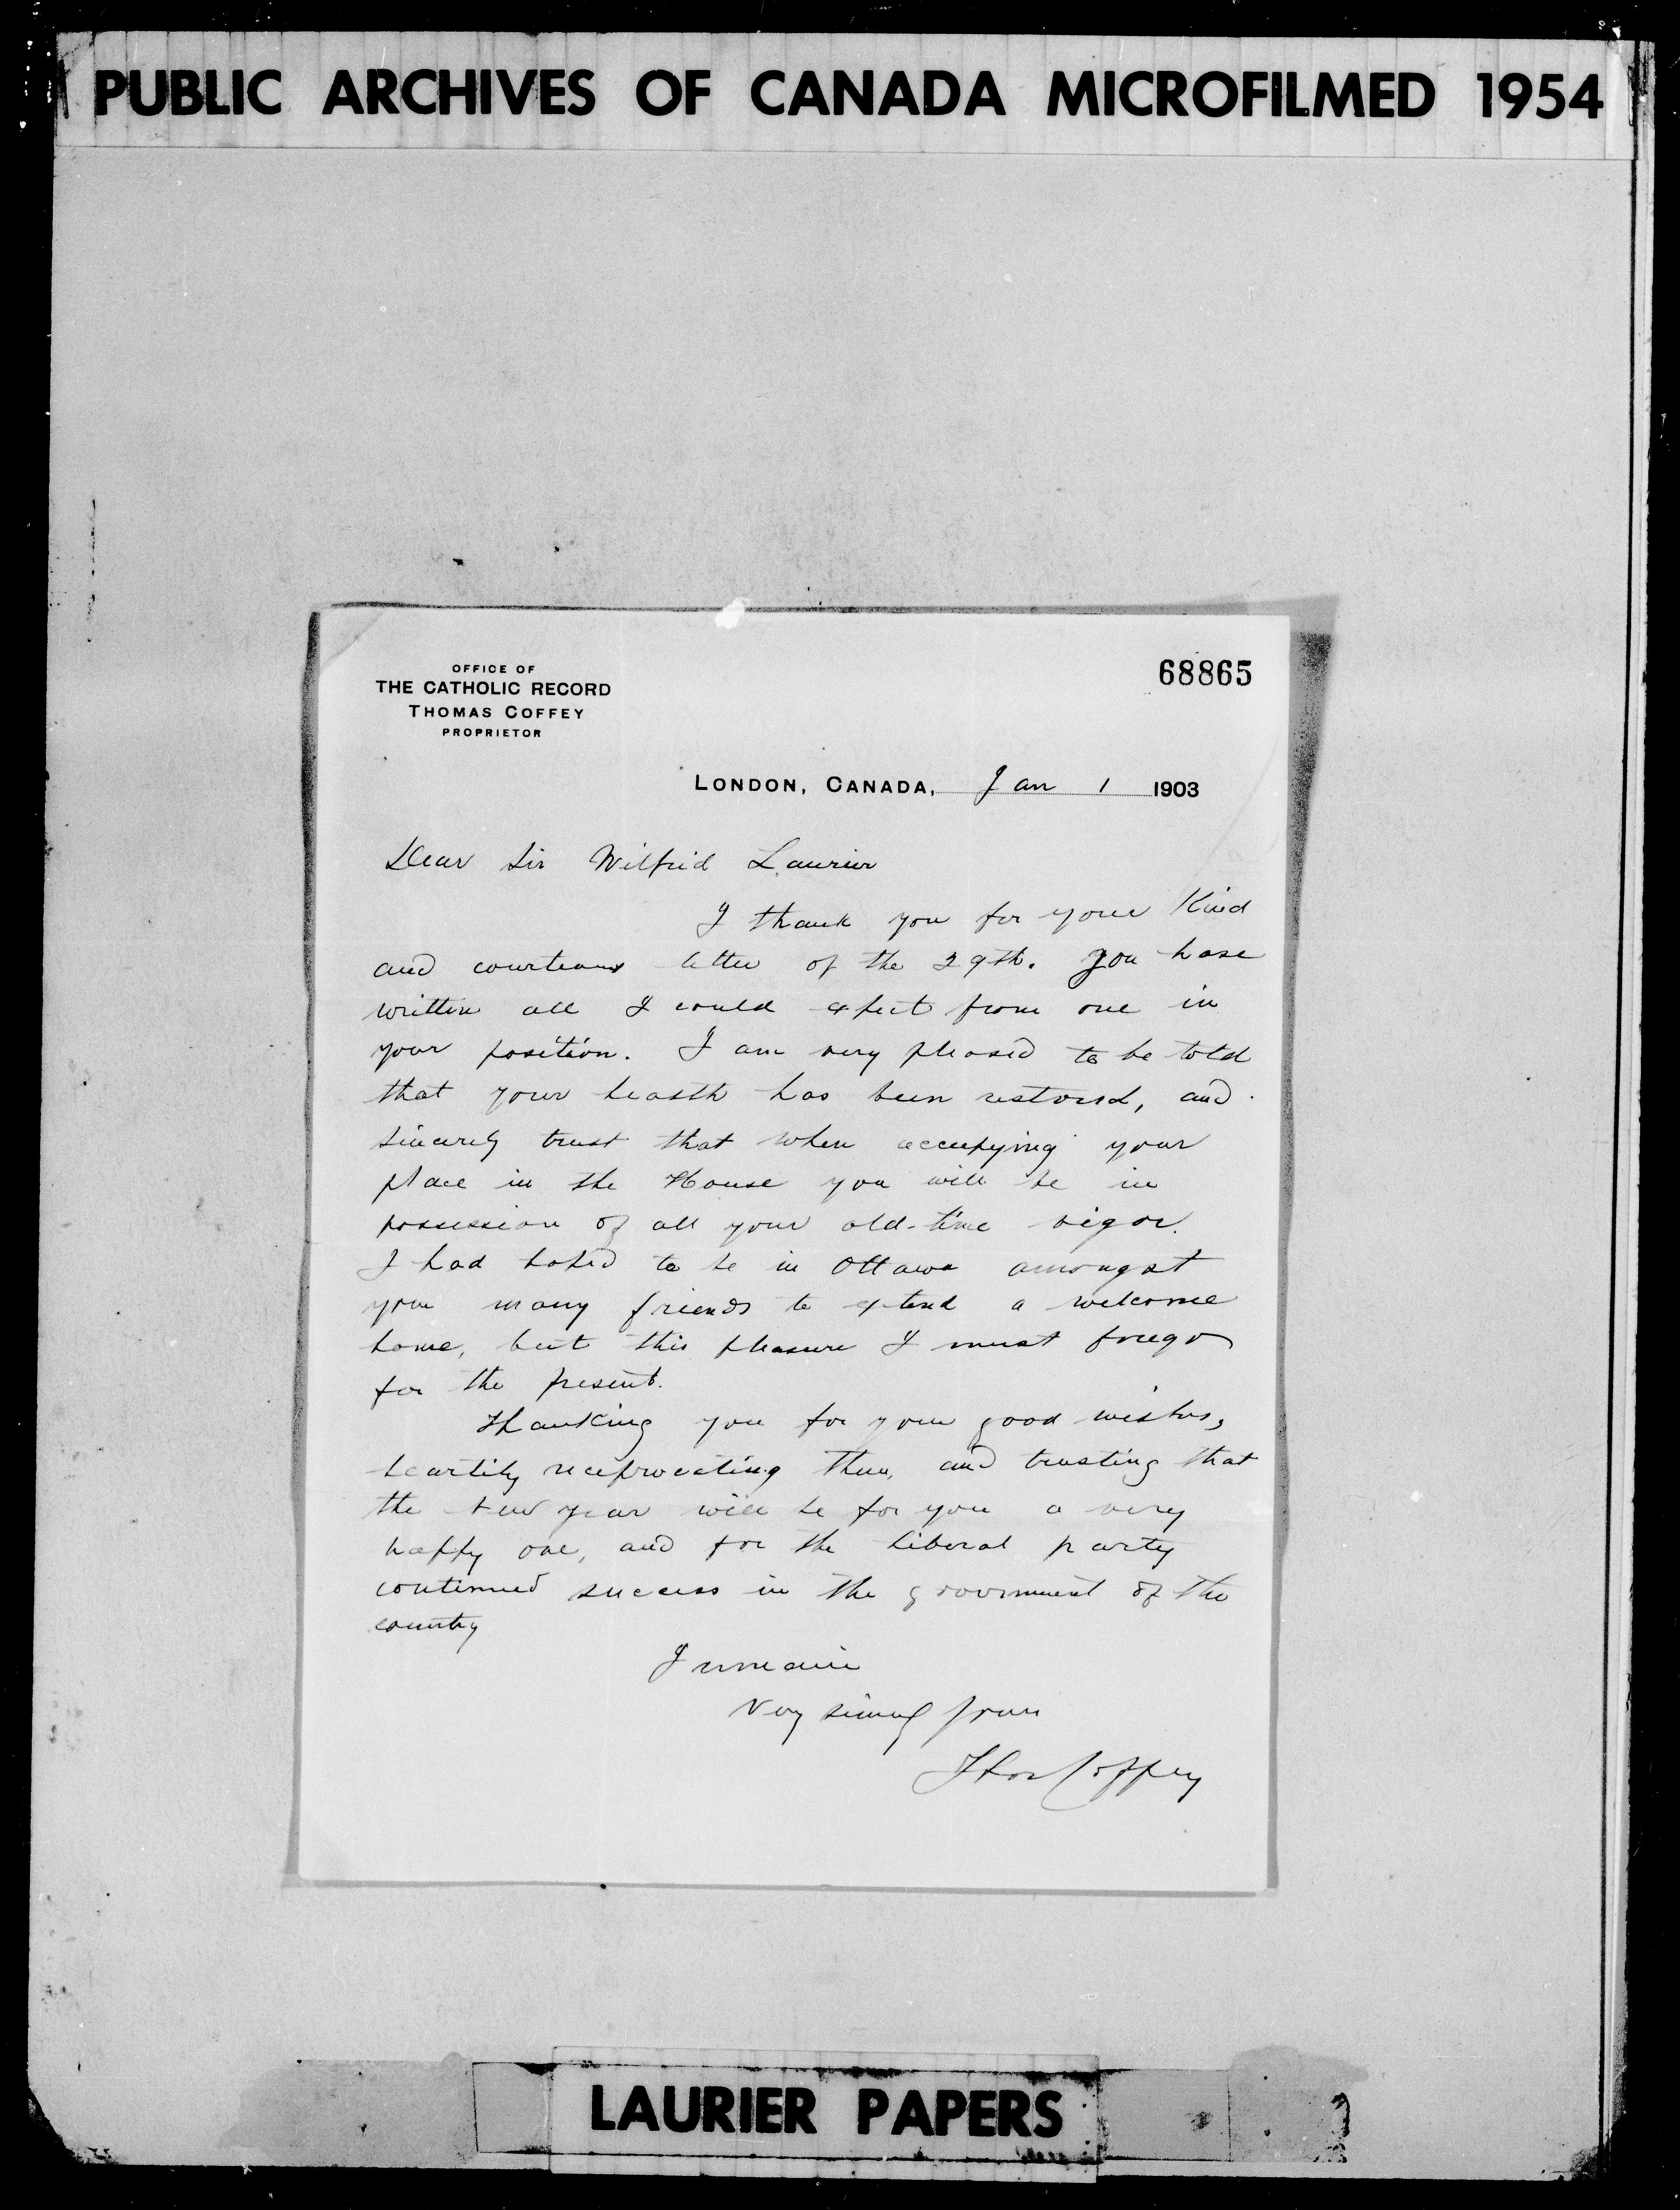 PUBLIC ARCHIVES OF CANADA MICROFILMED 1954
OFFICE OF
THE CATHOLIC RECORD
THOMAS COFFEY
PROPRIETOR
68865
LONDON, CANADA, Jan 1 1903
Dear Sir Wilfrid Laurier
I thank you for your kind
and courteous letter of the 29th. You have
written all I could expect from one in
your position. I am very pleased to be told
that your health has been restored, and
sincerely trust that when occupying your
place in the House you will be in
possession of all your old-time vigor.
I had hoped to be in Ottawa amongst
your many friends to extend a welcome
home, but this pleasure I must forego
for the present.
Thanking you for your good wishes,
heartily reciprocating them, and trusting that
the new year will be for you a very
happy one, and for the Liberal party
continued success in the government of the
country
I remain
Very sincerely yours
Thos Coffey
LAURIER PAPERS